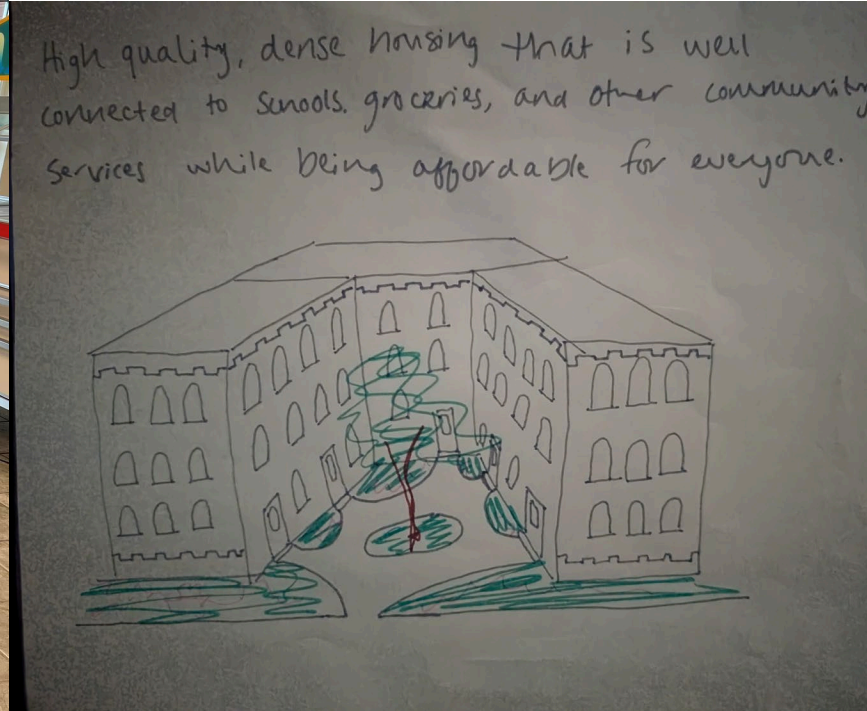 High quality, dense housing that is well
connected to schools, groceries, and other community
services while being affordable for everyone.